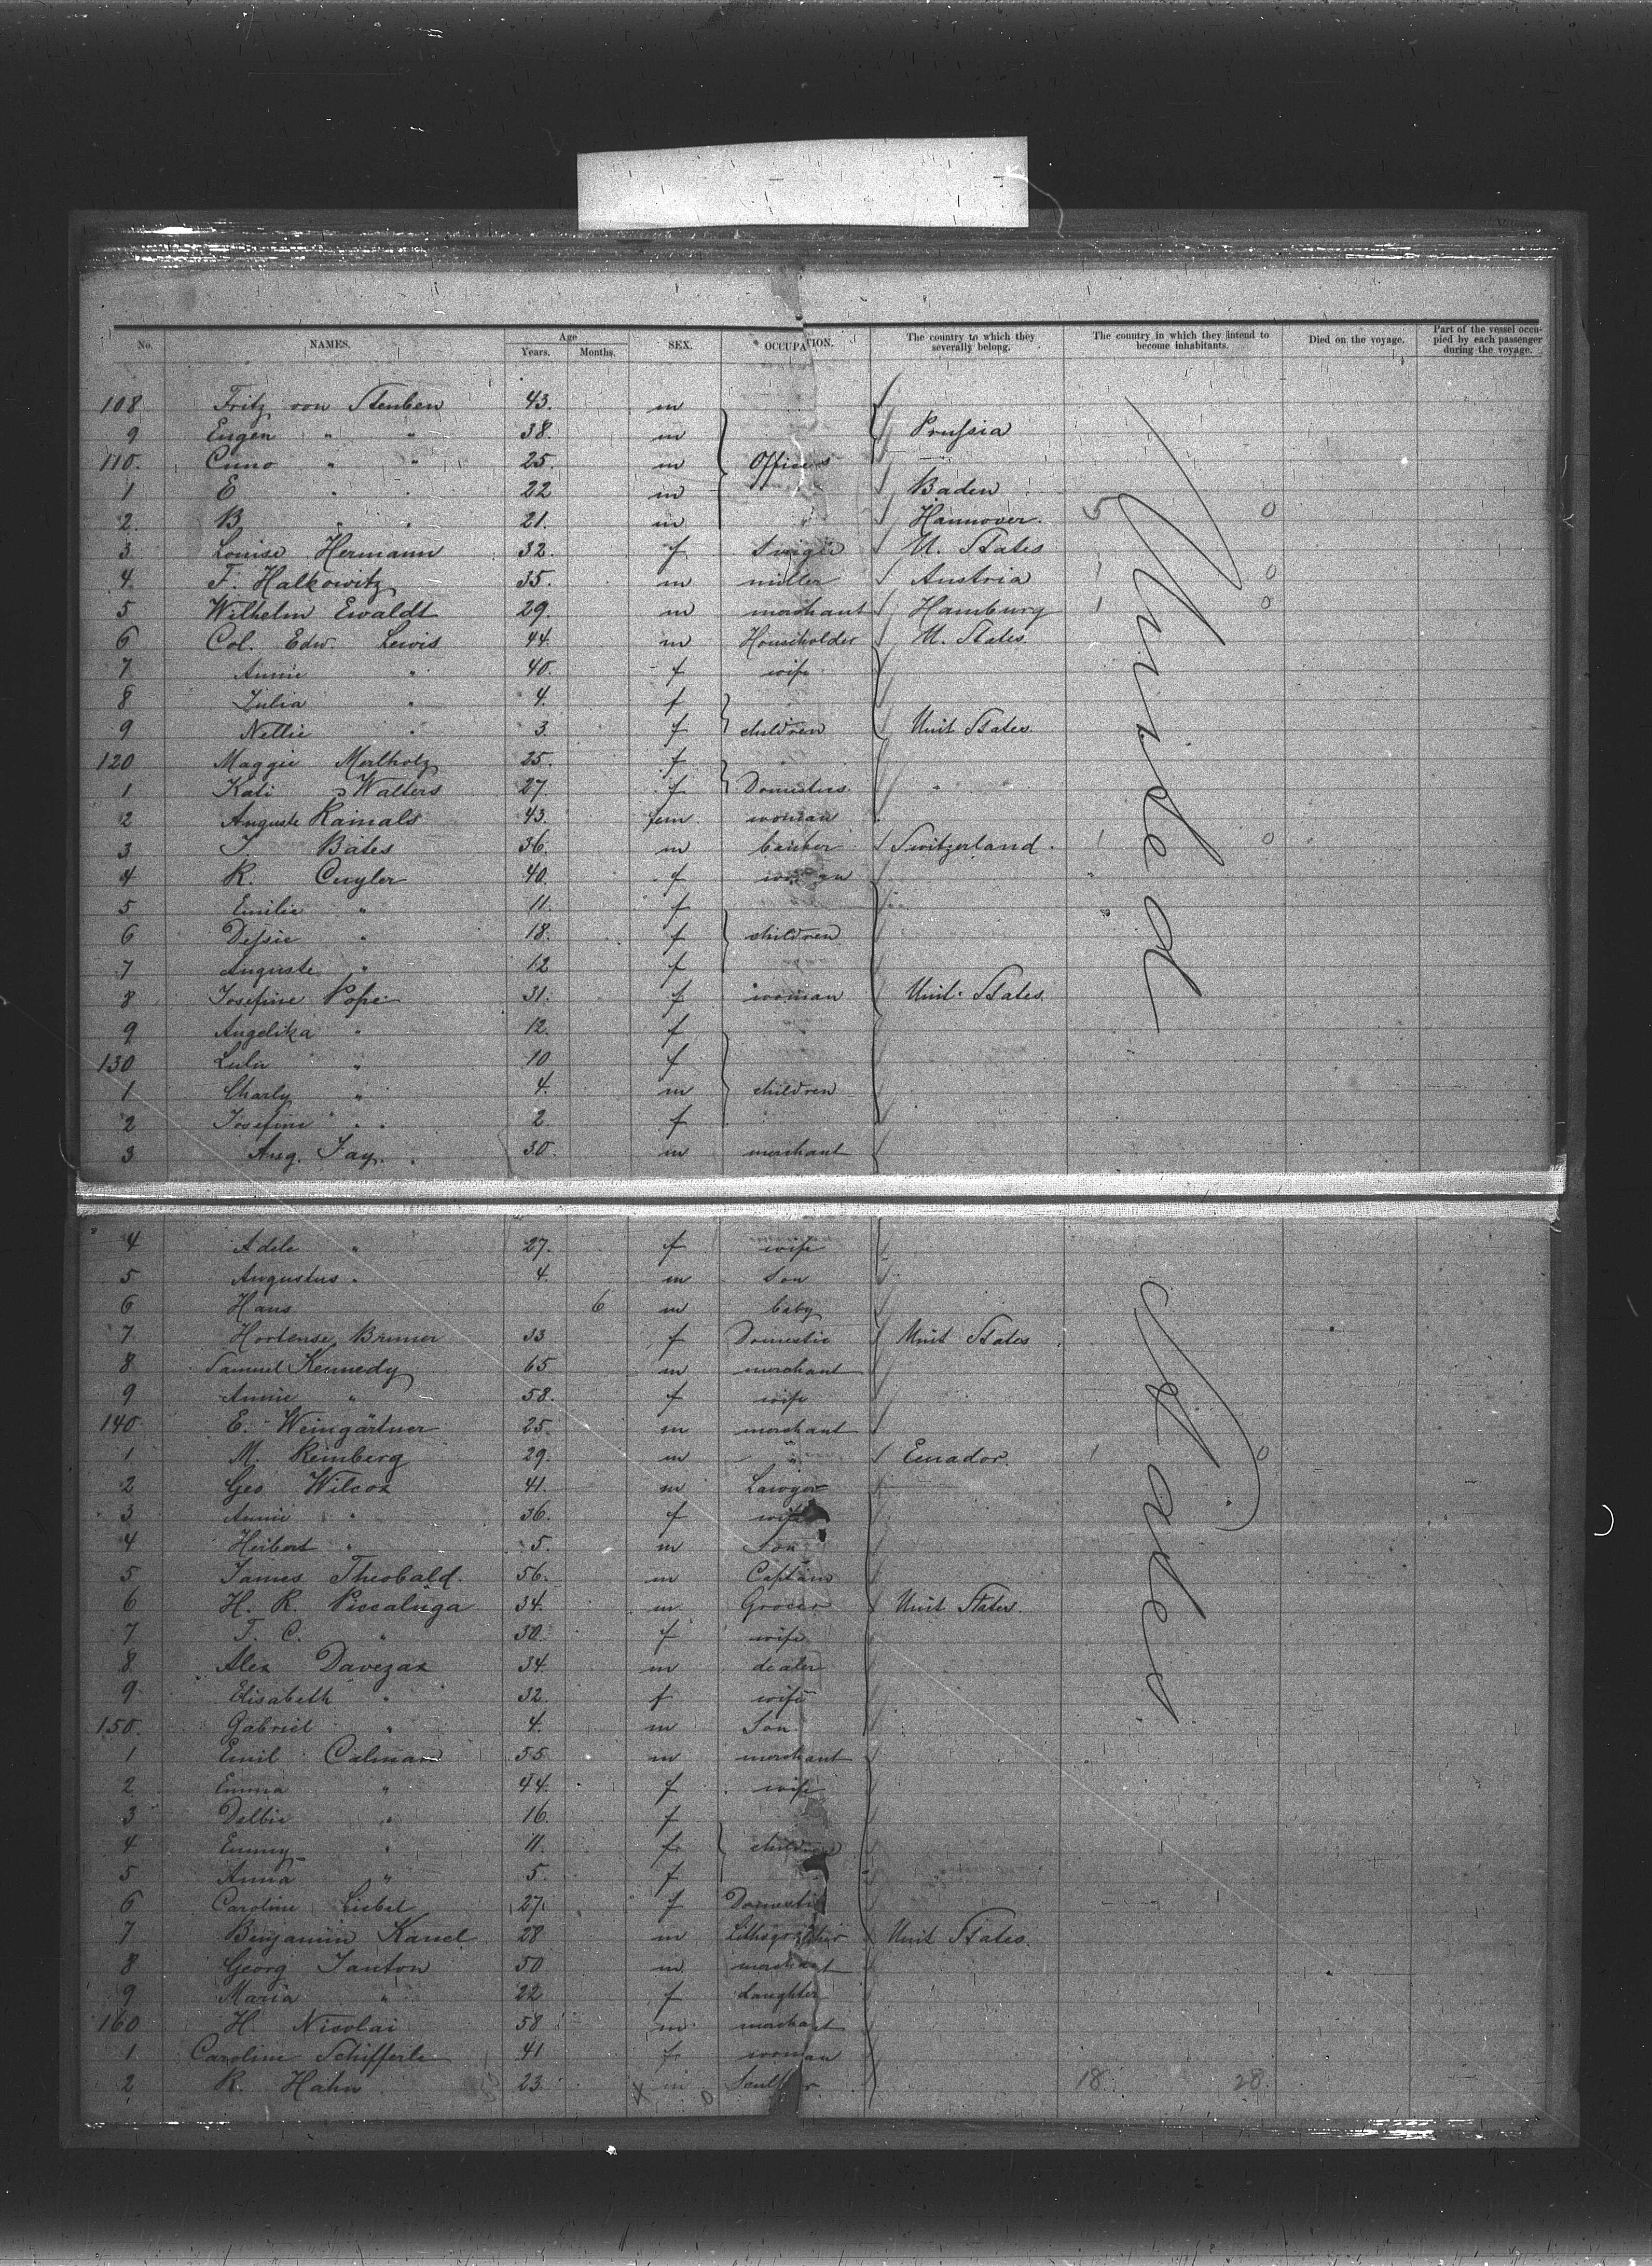 No. NAMES. Age Years. Months. SEX. OCCUPATION. The country to which they severally belong. The country in which they intend to become inhabitants. Died on the voyage. Part of the vessel occupied by each passenger during the voyage.
108 Fritz von Steuben 43. m
9 Eugen " " 38. m Prussia
110. Cuno " " 25. m Officers
1 E " " 22 m Baden
2. B " " 21. m Hannover. 5 0
3 Louise Hermann 32. f Single U. States
4. F. Halkowitz 35. m miller Austria 1 0
5 Wilhelm Ewaldt 29. m merchant Hamburg 1 0
6 Col. Edw. Lewis 44. m Householder U. States
7 Annie " 40. f wife
8 Julia " 4. f
9 Nellie " 3. f children Unit States
120 Maggie Merlholz 25. f
1 Kati Walters 27. f Domestics "
2 Auguste Rainals 43. fem woman
3 J. Bates 36. m banker Switzerland. 1 0
4 R. Cuyler 40. f woman
5 Emilie " 11. f
6 Dessie " 18. f children
7 Auguste " 12 f
8 Josefine Pope 31. f woman Unit. States.
9 Angelika " 12. f
130 Lulu " 10 f
1 Charly " 4. m children
2 Josefine " 2. f
3 Aug. Jay. 30. m merchant
United
4 Adele " 27. f wife
5 Augustus " 4. m Son
6 Hans 6 m baby
7 Hortense Brunner 33 f Domestic Unit States
8 Samuel Kennedy 65 m merchant
9 Annie " 58. f wife
140. E. Weingärtner 25. m merchant
1 M. Reinberg 29. m " Ecuador. 1 0
2 Geo Wilcox 41. m Lawyer
3 Annie " 36. f wife
4 Heibert " 5. m Son
5 James Theobald. 56. m Captain
6 H. R. Piccaluga 34. m Grocer Unit States.
7 F. C. " 30. f wife
8 Alex Davezax 34. m dealer
9 Elisabeth " 32. f wife
150. Gabriel " 4. m Son
1 Emil Calman 55 m merchant
2 Emma " 44. f wife
3 Delbie " 16. f
4 Emmy " 11. f children
5 Anna " 5. f
6 Caroline Liebel 27. f Domestic
7 Benjamin Kanel 28 m Lithographer Unit States.
8 Georg Janton 50 m merchant
9 Maria " 22 f daughter
160 H. Nicolai 58 m merchant
1 Caroline Schifferle 41 f woman
2 R. Hahn 23 m Sculptor 18 28.
States